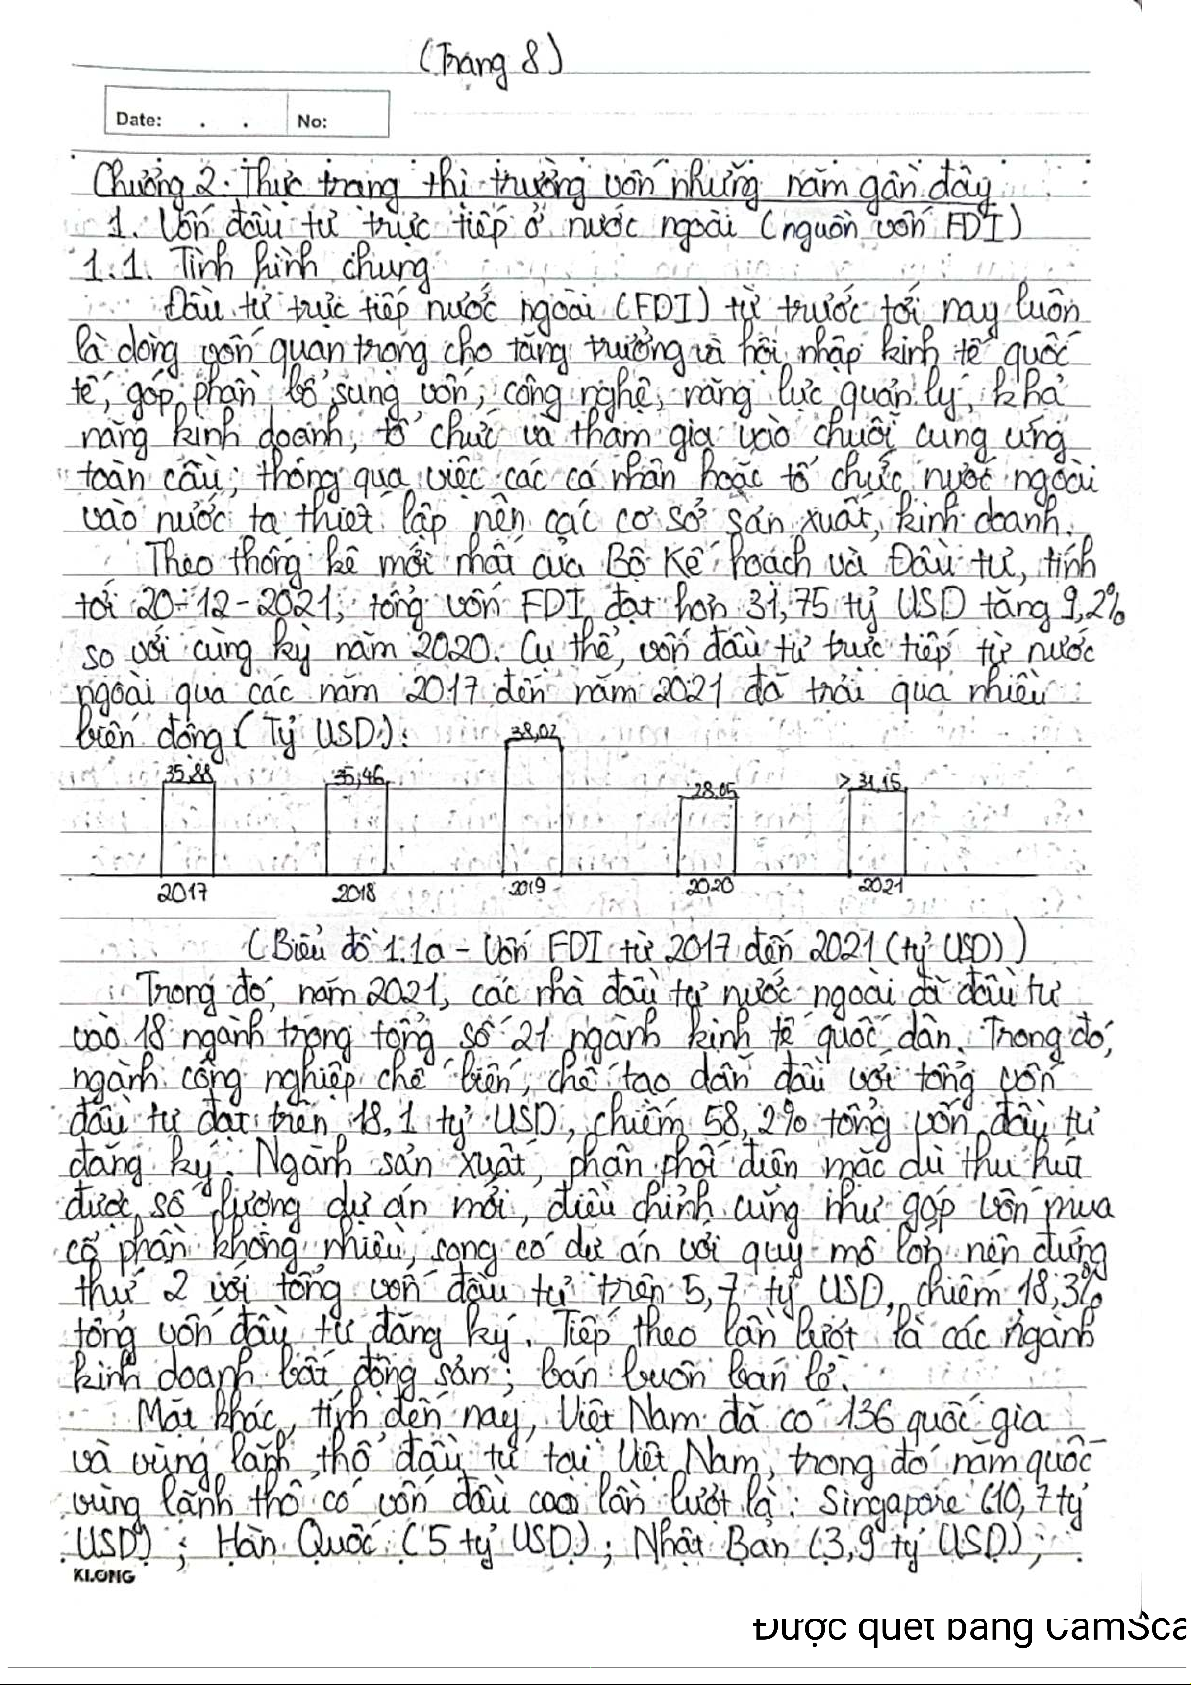 (Trang 8)
Date: . . No:
Chương 2. Thực trạng thị trường vốn những năm gần đây
1. Vốn đầu tư trực tiếp ở nước ngoài (nguồn vốn FDI)
1.1. Tình hình chung
Đầu tư trực tiếp nước ngoài (FDI) từ trước tới nay luôn
là dòng vốn quan trọng cho tăng trưởng và hội nhập kinh tế quốc
tế, góp phần bổ sung vốn, công nghệ, năng lực quản lý, khả
năng kinh doanh, tổ chức và tham gia vào chuỗi cung ứng
toàn cầu, thông qua việc các cá nhân hoặc tổ chức nước ngoài
vào nước ta thiết lập nên các cơ sở sản xuất, kinh doanh.
Theo thống kê mới nhất của Bộ Kế hoạch và Đầu tư, tính
tới 20-12-2021, tổng vốn FDI đạt hơn 31,75 tỷ USD tăng 9,2%
so với cùng kỳ năm 2020. Cụ thể, vốn đầu tư trực tiếp từ nước
ngoài qua các năm 2017 đến năm 2021 đã trải qua nhiều
biến động (Tỷ USD):
35,88 35,46 38,02 28,05 > 31,15
2017 2018 2019 2020 2021
(Biểu đồ 1.1a - Vốn FDI từ 2017 đến 2021 (tỷ USD))
Trong đó, năm 2021, các nhà đầu tư nước ngoài đã đầu tư
vào 18 ngành trong tổng số 21 ngành kinh tế quốc dân. Trong đó,
ngành công nghiệp chế biến, chế tạo dẫn đầu với tổng vốn
đầu tư đạt trên 18,1 tỷ USD, chiếm 58,2% tổng vốn đầu tư
đăng ký. Ngành sản xuất, phân phối điện mặc dù thu hút
được số lượng dự án mới, điều chỉnh cũng như góp vốn mua
cổ phần không nhiều, song có dự án với quy mô lớn nên đứng
thứ 2 với tổng vốn đầu tư trên 5,7 tỷ USD, chiếm 18,3%
tổng vốn đầu tư đăng ký. Tiếp theo lần lượt là các ngành
kinh doanh bất động sản; bán buôn bán lẻ.
Mặt khác, tính đến nay, Việt Nam đã có 136 quốc gia
và vùng lãnh thổ đầu tư tại Việt Nam, trong đó năm quốc
vùng lãnh thổ có vốn đầu cao lần lượt là: Singapore (10,7 tỷ
USD); Hàn Quốc (5 tỷ USD); Nhật Bản (3,9 tỷ USD);
KLONG
Được quét bằng CamSca